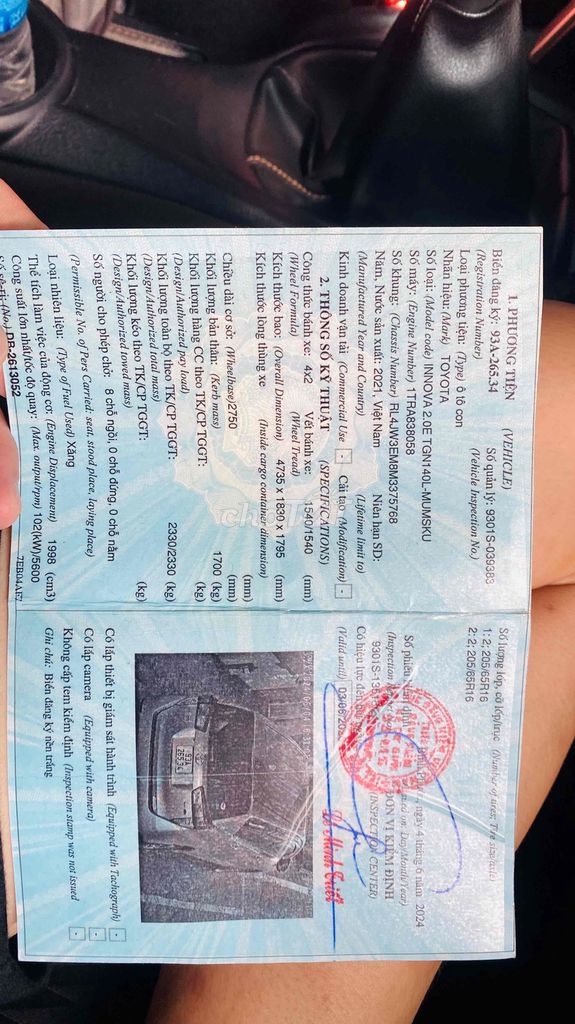 1. PHƯƠNG TIỆN (VEHICLE)
Biển đăng ký: 93A-265.34 Số quản lý: 9301S-039383
(Registration Number) (Vehicle Inspection No.)
Loại phương tiện: (Type) ô tô con
Nhãn hiệu: (Mark) TOYOTA
Số loại: (Model code) INNOVA 2.0E TGN140L-MUMSKU
Số máy: (Engine Number) 1TRA839058
Số khung: (Chassis Number) RL4JW3EM8M3375768
Năm, Nước sản xuất: 2021, Việt Nam Niên hạn SD:
(Manufactured Year and Country) (Lifetime limit to)
Kinh doanh vận tải (Commercial Use) - Cải tạo (Modification) -
2. THÔNG SỐ KỸ THUẬT (SPECIFICATIONS)
Công thức bánh xe: 4x2 Vết bánh xe: 1540/1540 (mm)
(Wheel Formula) (Wheel Tread)
Kích thước bao: (Overall Dimension) 4735 x 1830 x 1795 (mm)
Kích thước lòng thùng xe (mm)
(Inside cargo container dimension)
Chiều dài cơ sở: (Wheelbase) 2750 (mm)
Khối lượng bản thân: (Kerb mass) 1700 (kg)
Khối lượng hàng CC theo TK/CP TGGT: (kg)
(Design/Authorized pay load)
Khối lượng toàn bộ theo TK/CP TGGT: 2330/2330 (kg)
(Design/Authorized total mass)
Khối lượng kéo theo TK/CP TGGT: (kg)
(Design/Authorized towed mass)
Số người cho phép chở: 8 chỗ ngồi, 0 chỗ đứng, 0 chỗ nằm
(Permissible No. of Pers Carried: seat, stood place, laying place)
Loại nhiên liệu: (Type of Fuel Used) Xăng
Thể tích làm việc của động cơ: (Engine Displacement) 1998 (cm3)
Công suất lớn nhất/tốc độ quay: (Max. output/rpm) 102(kW)/5600
Số sê-ri: (No) DB-2613052 7EB04AE7
Số lượng lốp, cỡ lốp/trục (Number of tires; Tire size/axle)
1: 2; 205/65R16
2: 2; 205/65R16
Số phiếu kiểm định ngày 4 tháng 6 năm 2024
(Inspection Day/Month/Year)
9301S- ĐƠN VỊ KIỂM ĐỊNH
Có hiệu lực đến (INSPECTION CENTER)
(Valid until) 03/06/
Có lắp thiết bị giám sát hành trình (Equipped with Tachograph) -
Có lắp camera (Equipped with camera) -
Không cấp tem kiểm định (Inspection stamp was not issued -
Ghi chú: Biển đăng ký nền trắng